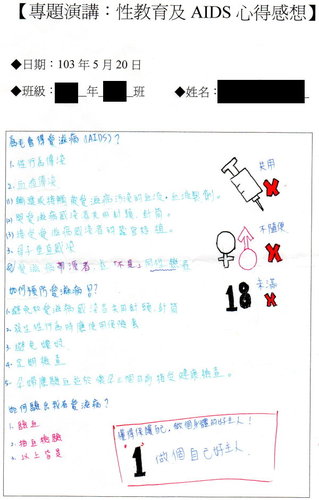 【專題演講：性教育及 AIDS 心得感想】
◆日期：103 年 5 月 20 日
◆班級： 年 班 ◆姓名：
為什麼會得愛滋病(AIDS)？
1. 性行為傳染
2. 血液傳染
(1) 輸進或接觸被愛滋病污染的血液、血液製劑。
(2) 與愛滋病感染者共用針頭、針筒。
(3) 接受愛滋病感染者的器官移植。
3. 母子垂直感染
愛滋病帶原者也"不是"同性戀者
共用
不隨便
18 未滿
如何預防愛滋病？
1. 避免和愛滋病感染者共用針頭、針筒
2. 發生性行為時應使用保險套
3. 避免嫖妓
4. 定期檢查
如何驗出我有愛滋病？
1. 驗血
2. 抽血檢驗
3. 以上皆是
懂得保護自己，做個身體的好主人！
1 做個自己好主人